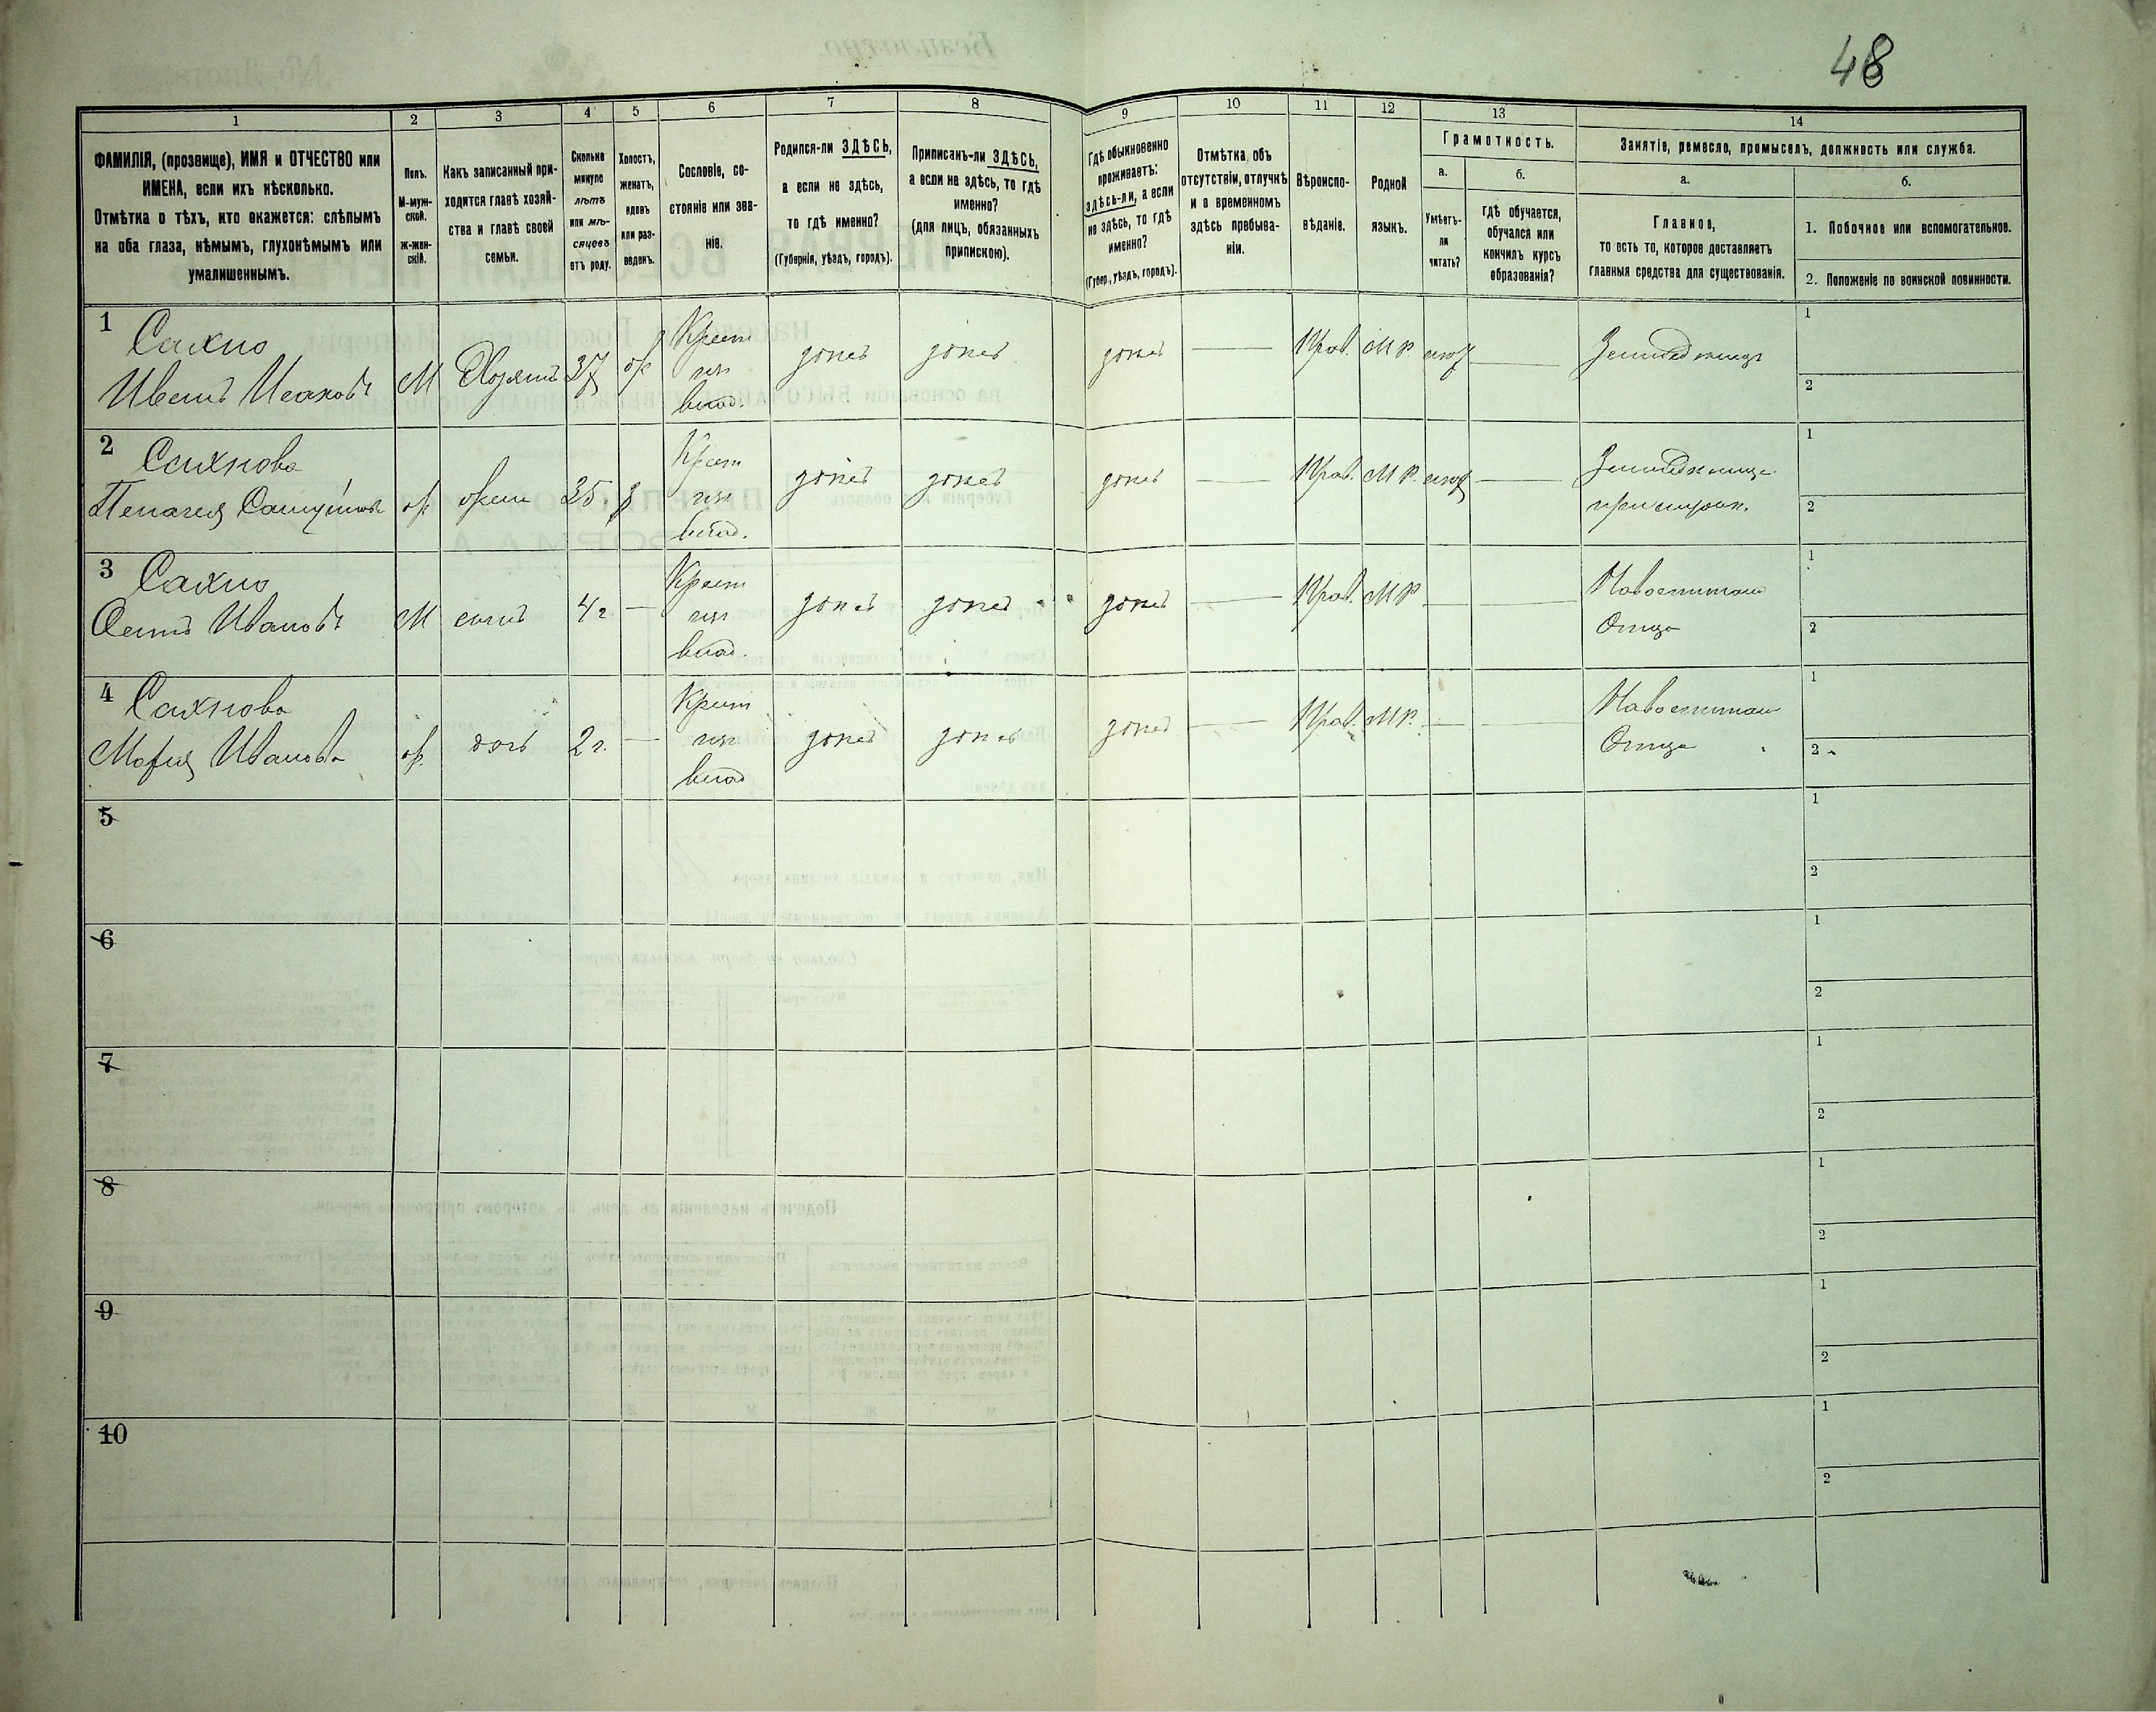 48
1
2
3
4
5
6
7
8
9
10
11
12
13
14
ФАМИЛІЯ, (прозвище), ИМЯ и ОТЧЕСТВО или
ИМЕНА, если ихъ нѣсколько.
Отмѣтка о тѣхъ, кто окажется: слѣпымъ
на оба глаза, нѣмымъ, глухонѣмымъ или
умалишеннымъ.
Полъ.
М-муж-
ской.
ж-жен-
скій.
Какъ записанный при-
ходится главѣ хозяй-
ства и главѣ своей
семьи.
Сколько
минуло
лѣтъ
или мѣ-
сяцевъ
отъ роду.
Холостъ,
женатъ,
вдовъ
или раз-
веденъ.
Сословіе, со-
стояніе или зва-
ніе.
Родился-ли ЗДѢСЬ,
а если не здѣсь,
то гдѣ именно?
(Губернія, уѣздъ, городъ).
Приписанъ-ли ЗДѢСЬ,
а если не здѣсь, то гдѣ
именно?
(для лицъ, обязанныхъ
припискою).
Гдѣ обыкновенно
проживаетъ:
здѣсь-ли, а если
не здѣсь, то гдѣ
именно?
(Губер., уѣздъ, городъ).
Отмѣтка объ
отсутствіи, отлучкѣ
и о временномъ
здѣсь пребыва-
ніи.
Вѣроиспо-
вѣданіе.
Родной
языкъ.
Грамотность.
а.
Умѣетъ-
ли
читать?
б.
гдѣ обучается,
обучался или
кончилъ курсъ
образованія?
Занятіе, ремесло, промыселъ, должность или служба.
а.
Главное,
то есть то, которое доставляетъ
главныя средства для существованія.
б.
1. Побочное или вспомогательное.
2. Положеніе по воинской повинности.
1 Сахно
Иванъ Исаковъ
М
Хозяинъ
37
ж
Крест
изъ
влад.
здесь
здесь
здесь
Прав.
М Р.
1
2
2 Сахнова
Пелагея
ж
жена
25.
з
Крест
изъ
влад.
здесь
здесь
здесь
Прав.
М Р.
1
2
3 Сахно
Ивановъ
М
сынъ
4 г
Крест
изъ
влад.
здесь
здесь
здесь
Прав.
М Р
Отца
1
2
4 Сахнова
Марія Иванова
ж.
дочь
2 г.
Крест
изъ
влад
здесь
здесь
здесь
Прав.
М Р.
Отца
1
2
5
1
2
6
1
2
7
1
2
8
1
2
9
1
2
10
1
2